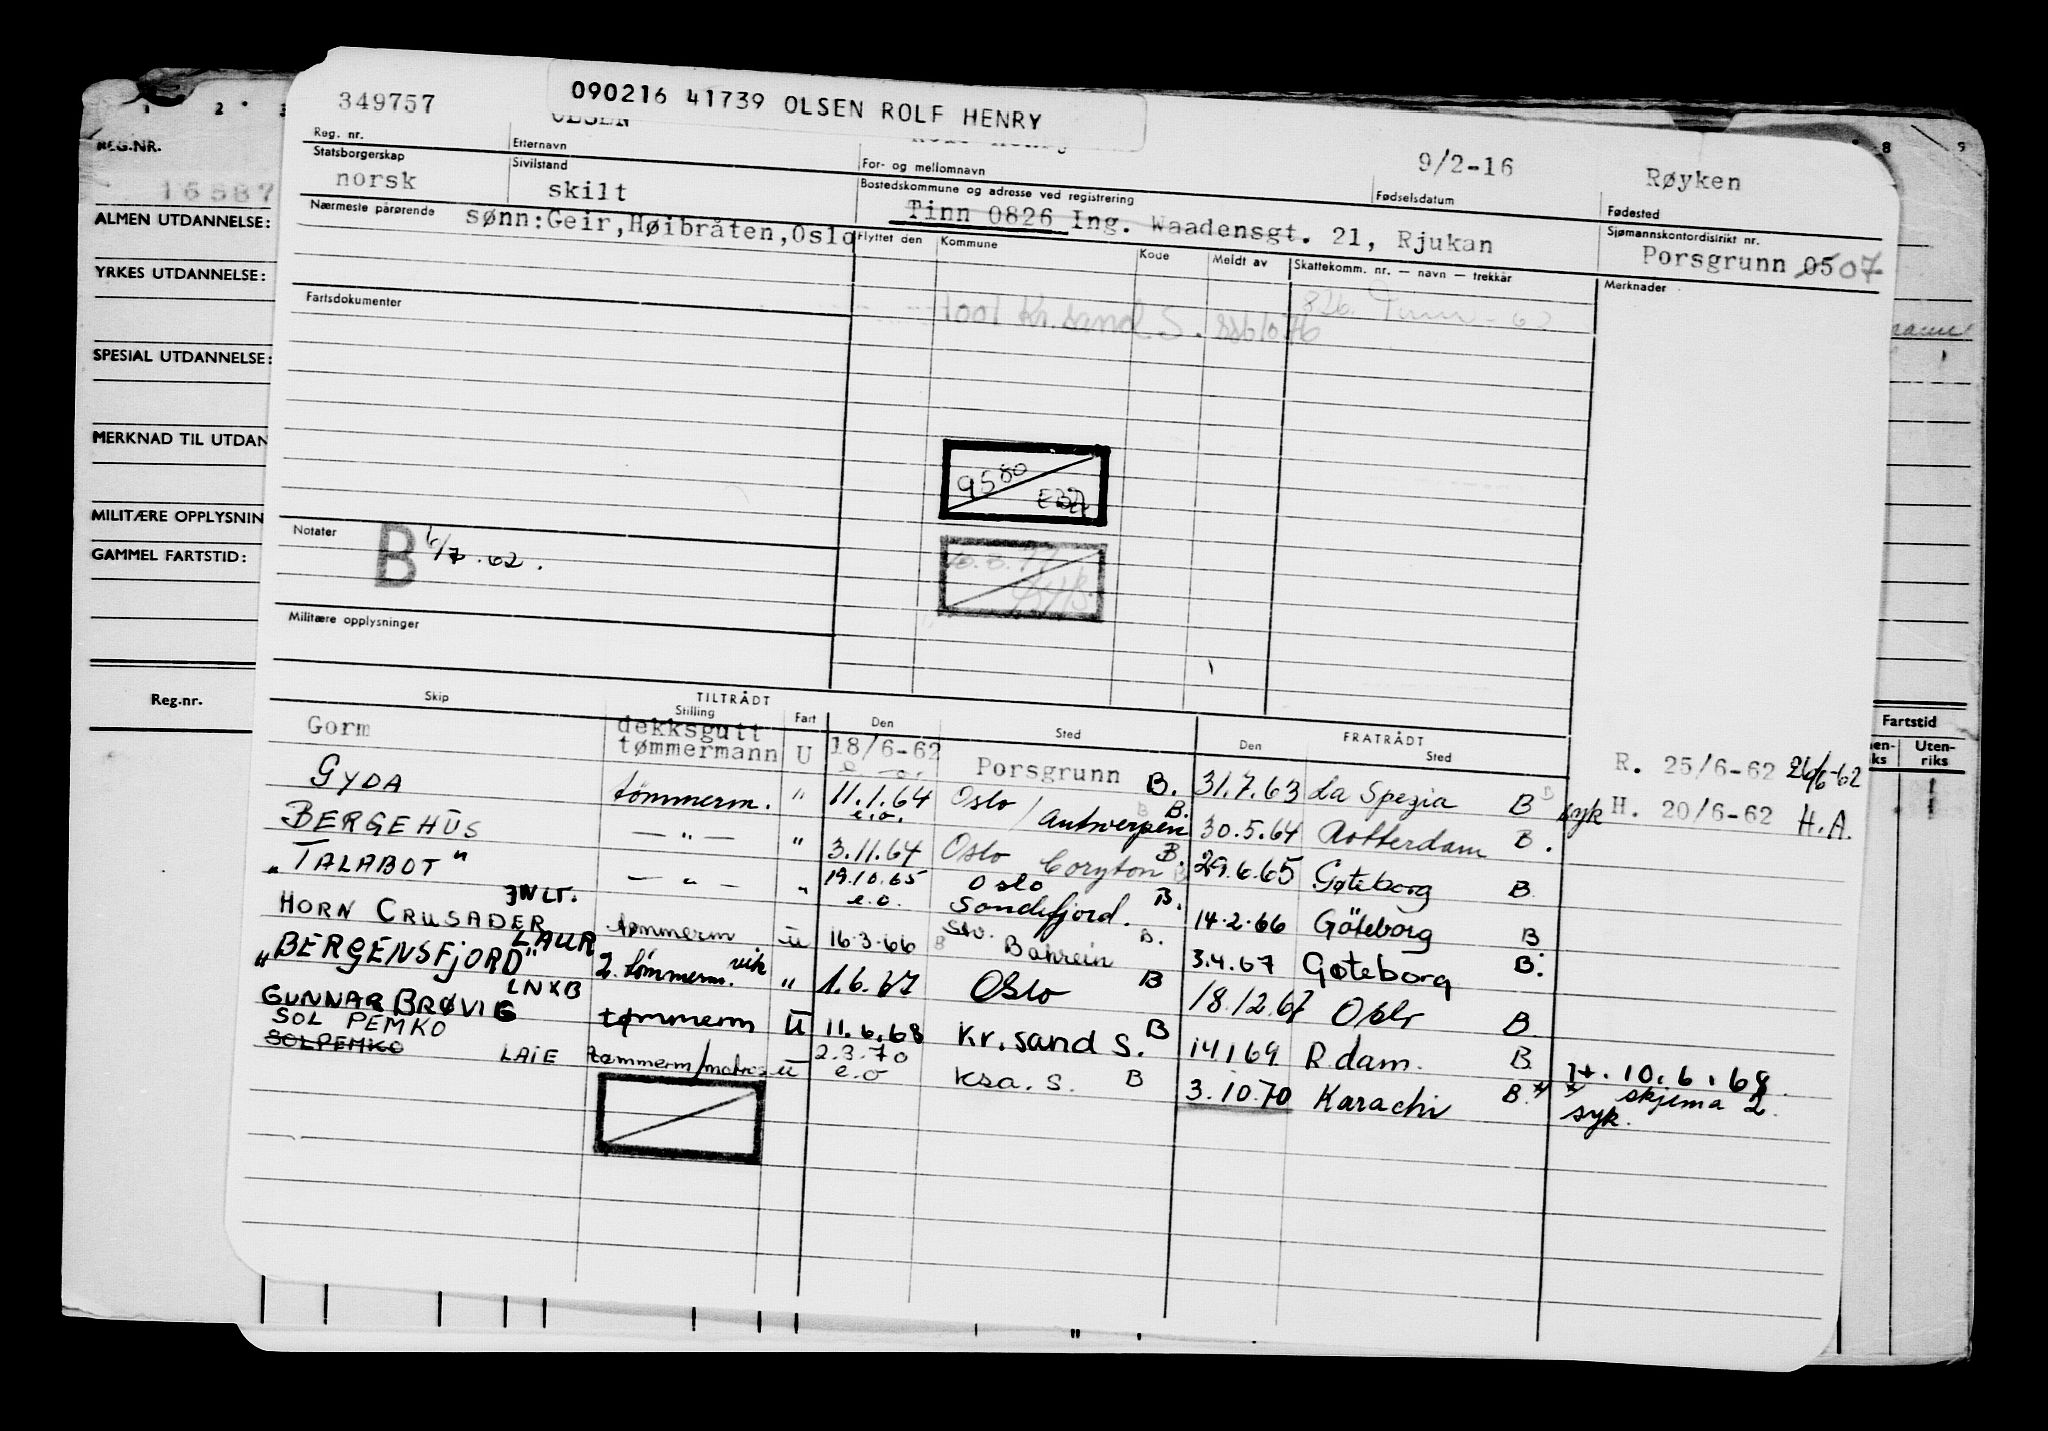 090216 41739 OLSEN ROLF HENRY
349757
9/2-16 Røyken
Reg. nr. Etternavn For- og mellomnavn Fødselsdatum Fødested
Statsborgerskap Sivilstand Bostedskommune og adresse ved registrering Sjømannskontordistrikt nr.
norsk skilt Tinn 0826 Ing. Waadensgt. 21, Rjukan Porsgrunn 05 07
Nærmeste pårørende sønn:Geir,Høibråten,Oslo
Flyttet den Kommune Kode Meldt av Skattekomm. nr. — navn — trekkår Merknader
Fartsdokumenter
1001 Kr.sand S.
Notater
B 6/7.62.
Militære opplysninger
Skip TILTRÅDT Stilling Fart Den Sted FRATRÅDT Den Sted
Gorm dekksgutt tømmermann U 18/6-62 Porsgrunn B. 31.7.63 La Spezia B syk
R. 25/6-62 26/6-62
H. 20/6-62 H.A.
GYDA tømmerm. " 11.1.64 e.o. Oslo / Antwerpen B. 30.5.64 Rotterdam B.
BERGEHUS — " — " 3.11.64 Oslo Coryton B. 29.6.65 Gøteborg B
"TALABOT" — " — " 19.10.65 e.o. Oslo Sandefjord. B. 14.2.66 Göteborg B
HORN CRUSADER JWLT. tømmerm U 16.3.66 Bahrein B. 3.4.67 Gøteborg B.
"BERGENSFJORD" LAUR 2. tømmerm. vik " 1.6.67 Oslo B 18.12.67 Oslo B
GUNNAR BRØVIG LNXB tømmerm U 11.6.68 Kr.sand S. B 14.1.69 R.dam. B
SOL PEMKO
SOLPEMKO LAIE tømmerm/matros U 2.3.70 e.o Ksa. S. B 3.10.70 Karachi B.*
10.6.68.
* skjema 2.
syk.
REG.NR.
16587
ALMEN UTDANNELSE:
YRKES UTDANNELSE:
SPESIAL UTDANNELSE:
MERKNAD TIL UTDAN
MILITÆRE OPPLYSNIN
GAMMEL FARTSTID:
Reg.nr.
Fartstid
Uten-
riks